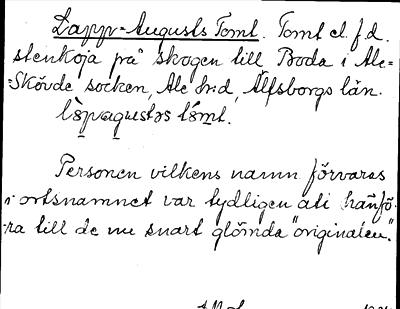 Lapp-Augusts Tomt. Tomt el. f.d.
stenkoja på skogen till Boda i Ale-
-Skövde socken, Ale h:d, Älfsborgs län.
Personen vilkens namn förvaras
i ortsnamnet var tydligen att hänfö-
ra till de nu snart glömda "originalen."